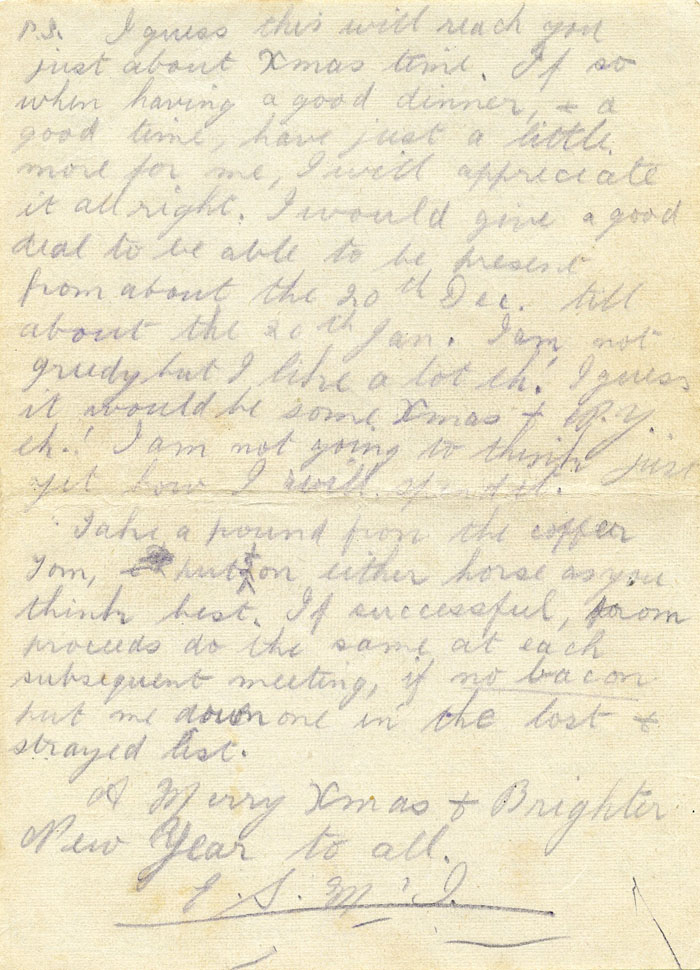 P.S. I guess this will reach you
just about Xmas time. If so
when having a good dinner, + a
good time, have just a little
more for me, I will appreciate
it all right. I would give a good
deal to be able to be present
from about the 20th Dec. till
about the 20th Jan. I am not
greedy but I like a lot eh! I guess
it would be some Xmas + N.Y.
eh.! I am not going to think just
yet how I will spend it.
Take a pound from the coffer
Tom, put it on either horse as you
think best. If successful, from
proceeds do the same at each
subsequent meeting, if no bacon
put me down one in the lost +
strayed list.
A Merry Xmas + Brighter
New Year to all.
E. S. McI.